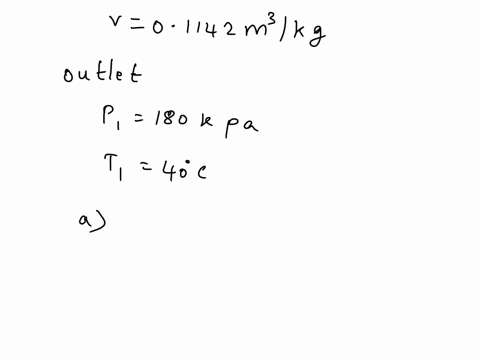 v = 0.1142 m³/kg
outlet
P₁ = 180 k pa
T₁ = 40°c
a)